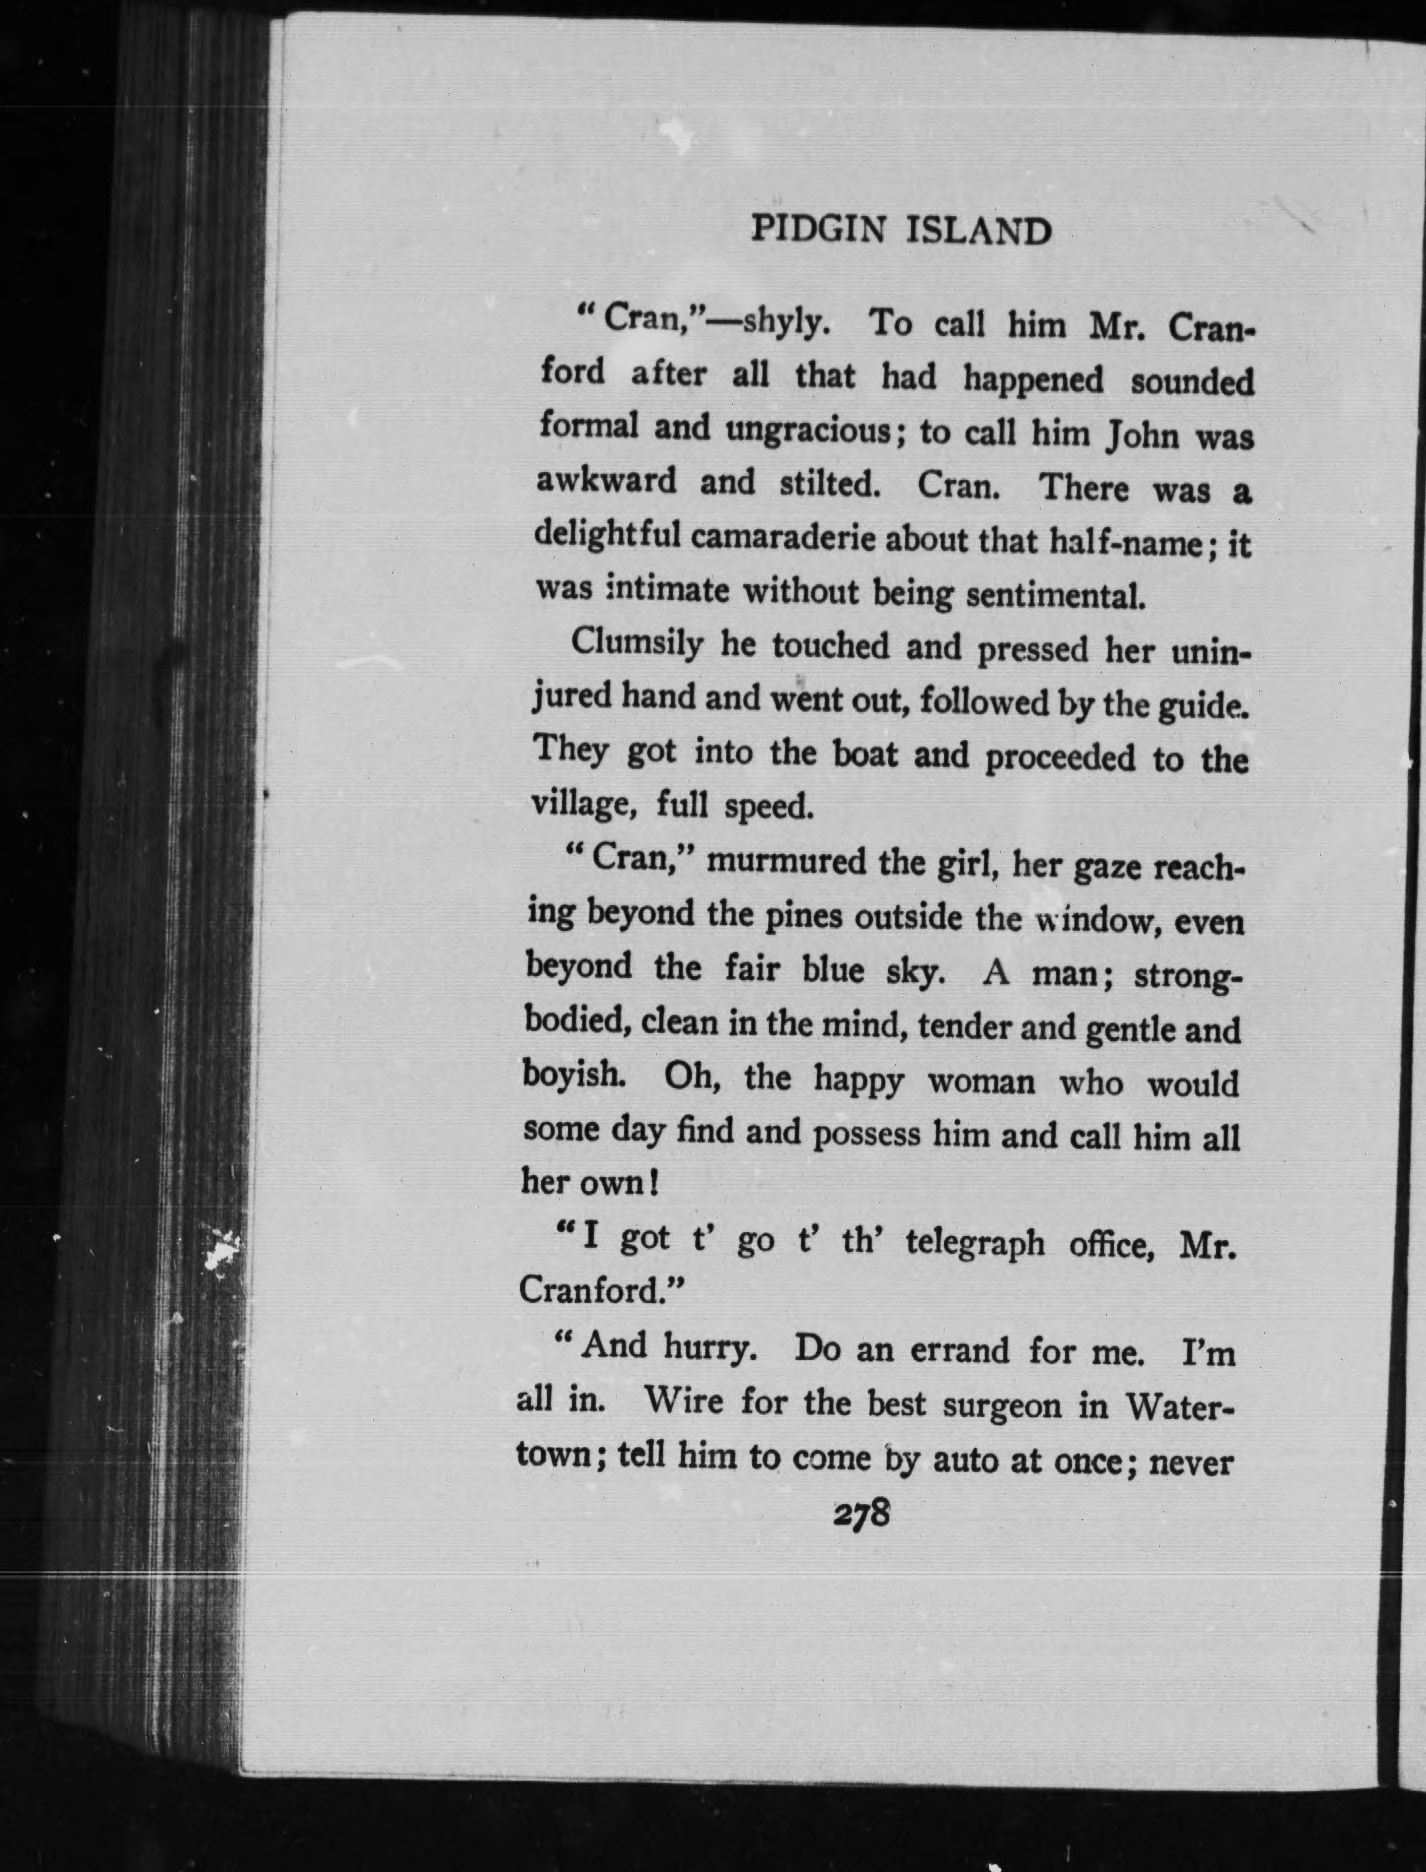 PIDGIN ISLAND
“Cran,”—shyly. To call him Mr. Cran-
ford after all that had happened sounded
formal and ungracious; to call him John was
awkward and stilted. Cran. There was a
delightful camaraderie about that half-name; it
was intimate without being sentimental.
Clumsily he touched and pressed her unin-
jured hand and went out, followed by the guide.
They got into the boat and proceeded to the
village, full speed.
“Cran,” murmured the girl, her gaze reach-
ing beyond the pines outside the window, even
beyond the fair blue sky. A man; strong-
bodied, clean in the mind, tender and gentle and
boyish. Oh, the happy woman who would
some day find and possess him and call him all
her own!
“I got t’ go t’ th’ telegraph office, Mr.
Cranford.”
“And hurry. Do an errand for me. I’m
all in. Wire for the best surgeon in Water-
town; tell him to come by auto at once; never
278